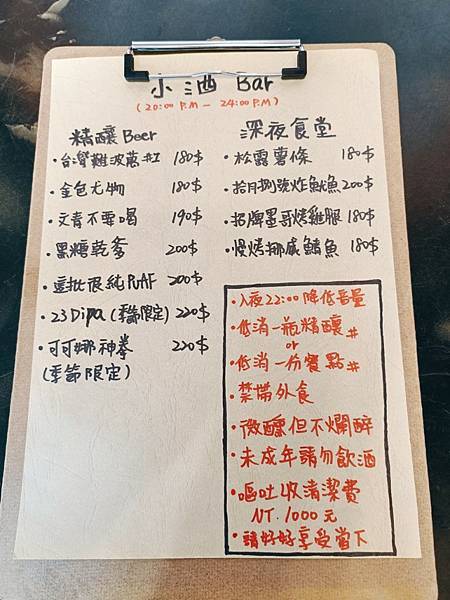 小酒 Bar
(20:00 P.M – 24:00 P.M)
精釀 Beer
·台灣雞波萬#I 180$
·金色尤物 180$
·文青不要喝 190$
·黑糖乾爹 200$
·這批很純 PUAF 200$
·23 Dipa (季節限定) 220$
·可可娜神拳 220$
(季節限定)
深夜食堂
·松露薯條 180$
·拾月捌號炸魷魚 200$
·招牌墨哥烤雞腿 180$
·慢烤挪威鯖魚 180$
·入夜 22:00 降低音量
·低消一瓶精釀#
or
·低消一份餐點#
·禁帶外食
·微醺但不爛醉
·未成年請勿飲酒
·嘔吐收清潔費
NT. 1000 元
·請好好享受當下